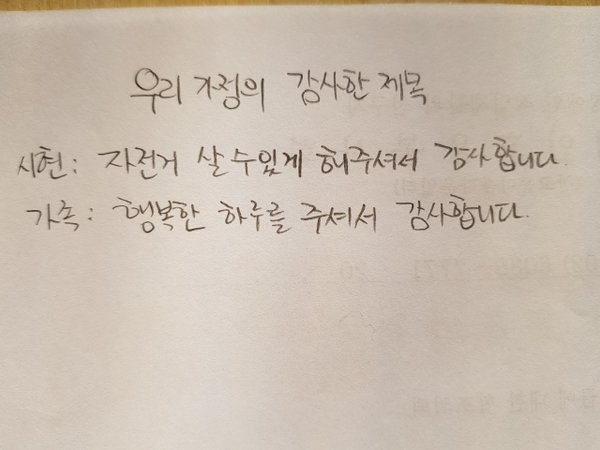 우리 가정의 감사한 제목
시현: 자전거 살 수 있게 해주셔서 감사합니다.
가족: 행복한 하루를 주셔서 감사합니다.